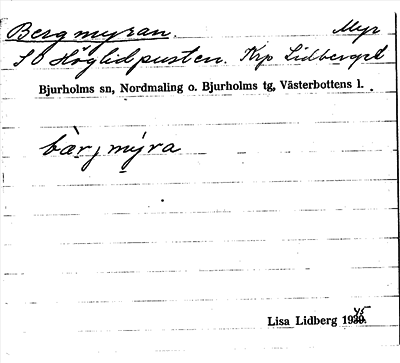 Bergmyran. Myr
SO Höglidpusten. Krp Lidberget
Bjurholms sn, Nordmaling o. Bjurholms tg, Västerbottens l.
bær, mýra
Lisa Lidberg 1945